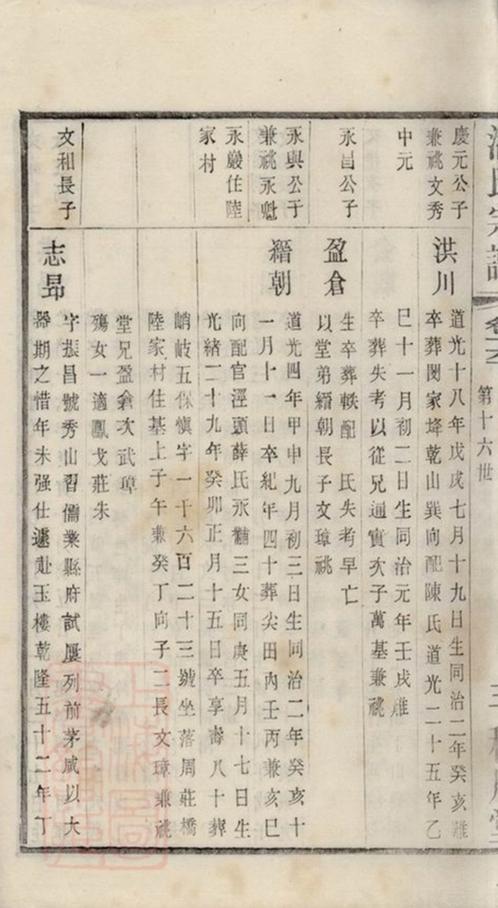 第十六世
慶元公子
兼祧文秀
中元
洪川
道光十八年戊戌七月十九日生同治二年癸亥雒
卒葬閔家垾乾山巽向配陳氏道光二十五年乙
巳十一月初二日生同治元年壬戌雒
卒葬失考以從兄通實次子萬基兼祧
永昌公子
盈倉
生卒葬軼配 氏失考早亡
以堂弟縉朝長子文璋祧
永興公子
兼祧永魁
永嚴住陸
家村
縉朝
道光四年甲申九月初三日生同治二年癸亥十
一月十一日卒紀年四十葬尖田內壬丙兼亥巳
向配官涇頭薛氏永龍三女同庚五月十七日生
光緒二十九年癸卯正月十五日卒享壽八十葬
峭岐五保慎字一千六百二十三號坐落周莊橋
陸家村住基上子午兼癸丁向子二長文璋兼祧
堂兄盈倉次武璋
殤女一適鳳戈莊朱
文和長子
志昻
字振昌號秀山習儒業縣府試屢列前茅咸以大
器期之惜年未强仕遽赴玉樓乾隆五十二年丁